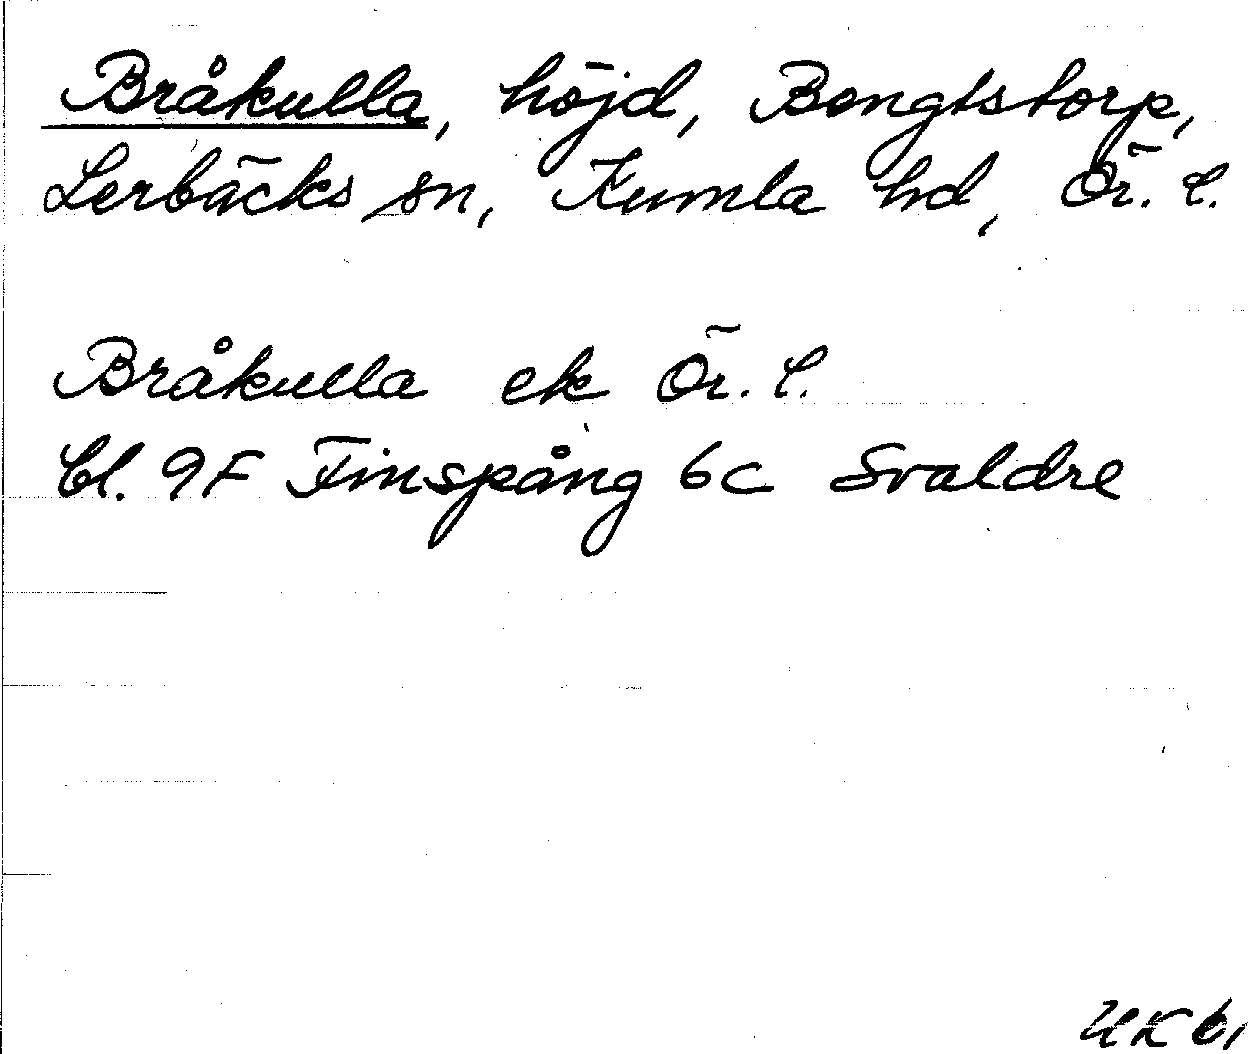 Bråkulla, höjd, Bengtstorp,
Lerbäcks sn, Kumla hd, Ör. l.
Bråkulla ek Ör. l.
bl. 9F Finspång 6c Svaldre